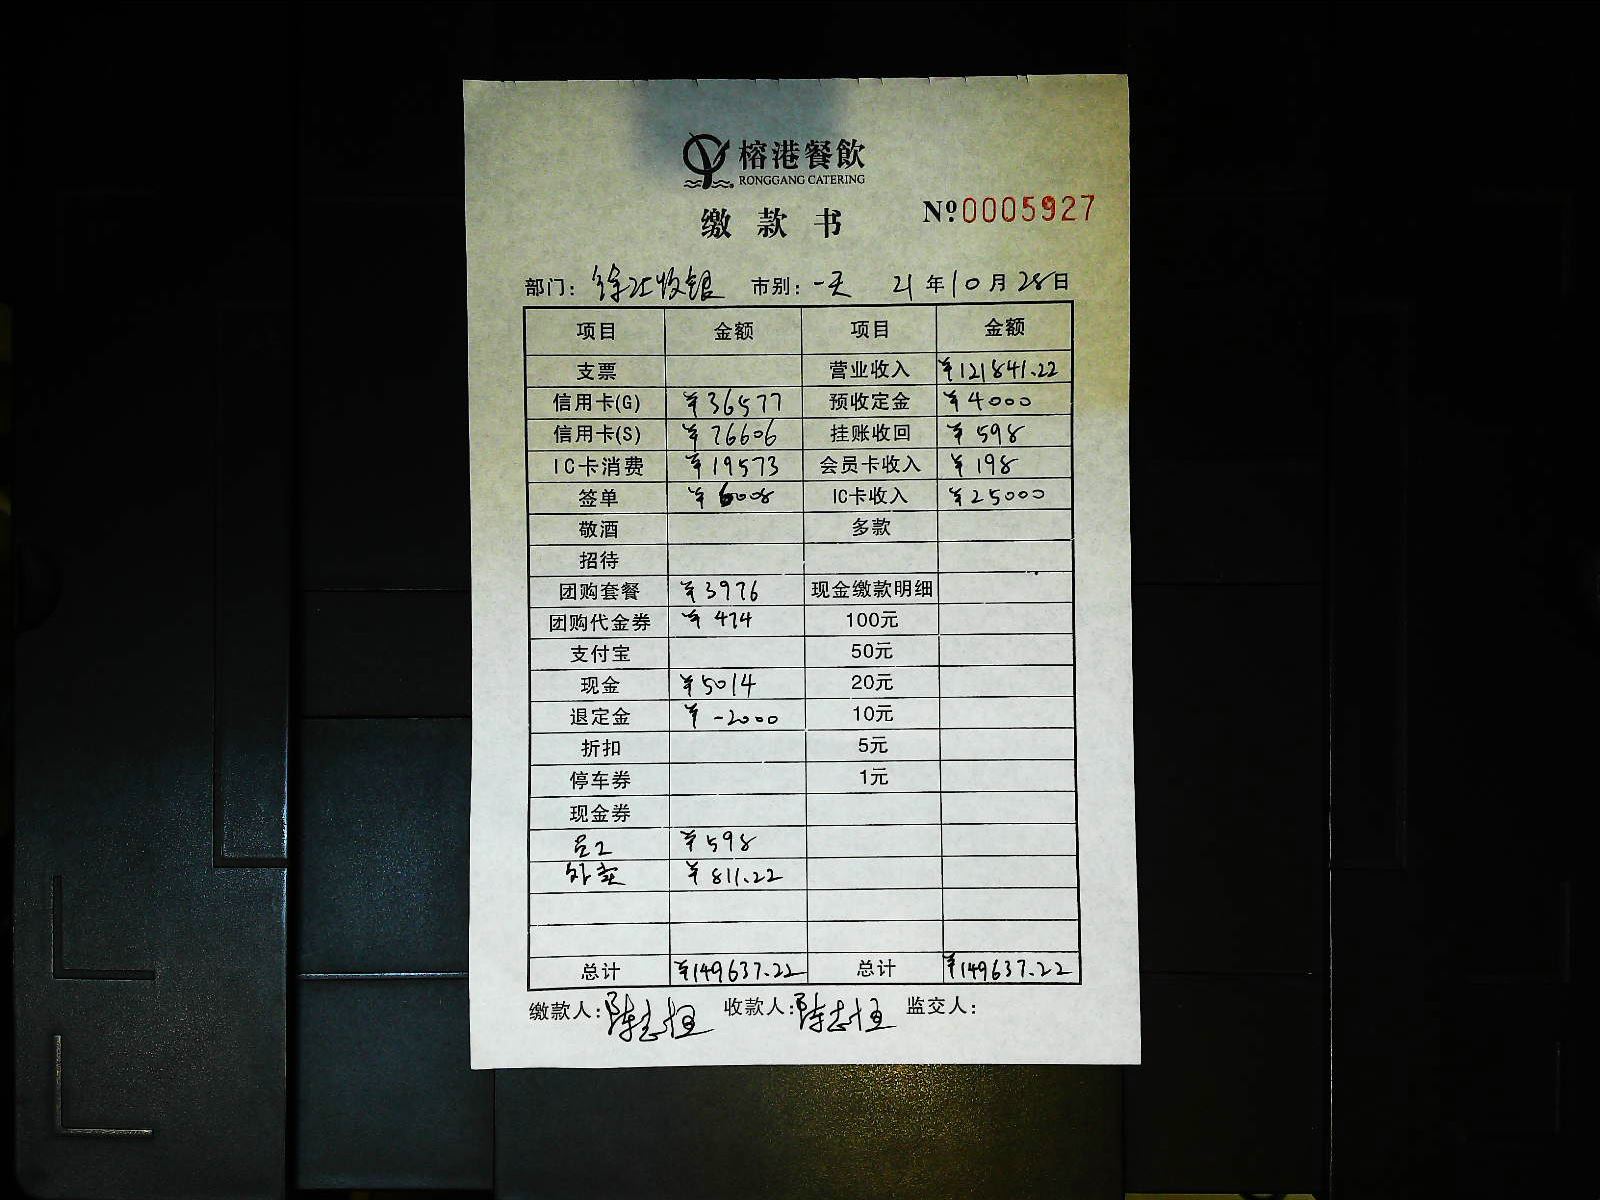 榕港餐飲
RONGGANG CATERING
缴款书
Nº:0005927
部门: 徐汇收银 市别: 一天 21年10月28日
项目 金额 项目 金额
支票 营业收入 ¥121841.22
信用卡(G) ¥36577 预收定金 ¥4000
信用卡(S) ¥76606 挂账收回 ¥598
IC卡消费 ¥19573 会员卡收入 ¥198
签单 ¥6008 IC卡收入 ¥25000
敬酒 多款
招待
团购套餐 ¥3976 现金缴款明细
团购代金券 ¥474 100元
支付宝 50元
现金 ¥5014 20元
退定金 ¥-2000 10元
折扣 5元
停车券 1元
现金券
员工 ¥598
外卖 ¥811.22
总计 ¥149637.22 总计 ¥149637.22
缴款人: 陈志恒 收款人: 陈志恒 监交人: